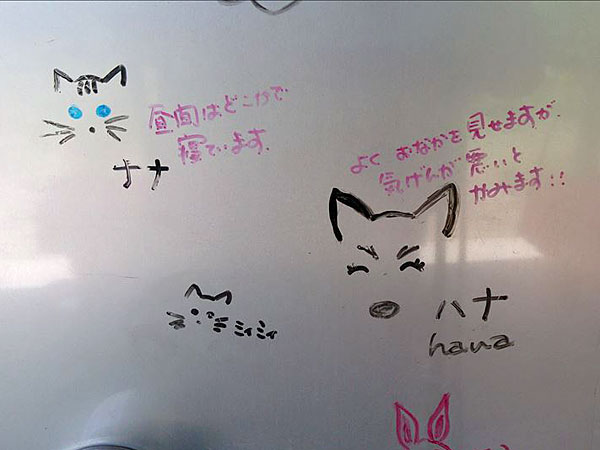 昼間はどこかで
寝ています。
ナナ
よく おなかを見せますが、
気げんが悪いと
かみます!!
ハナ
hana